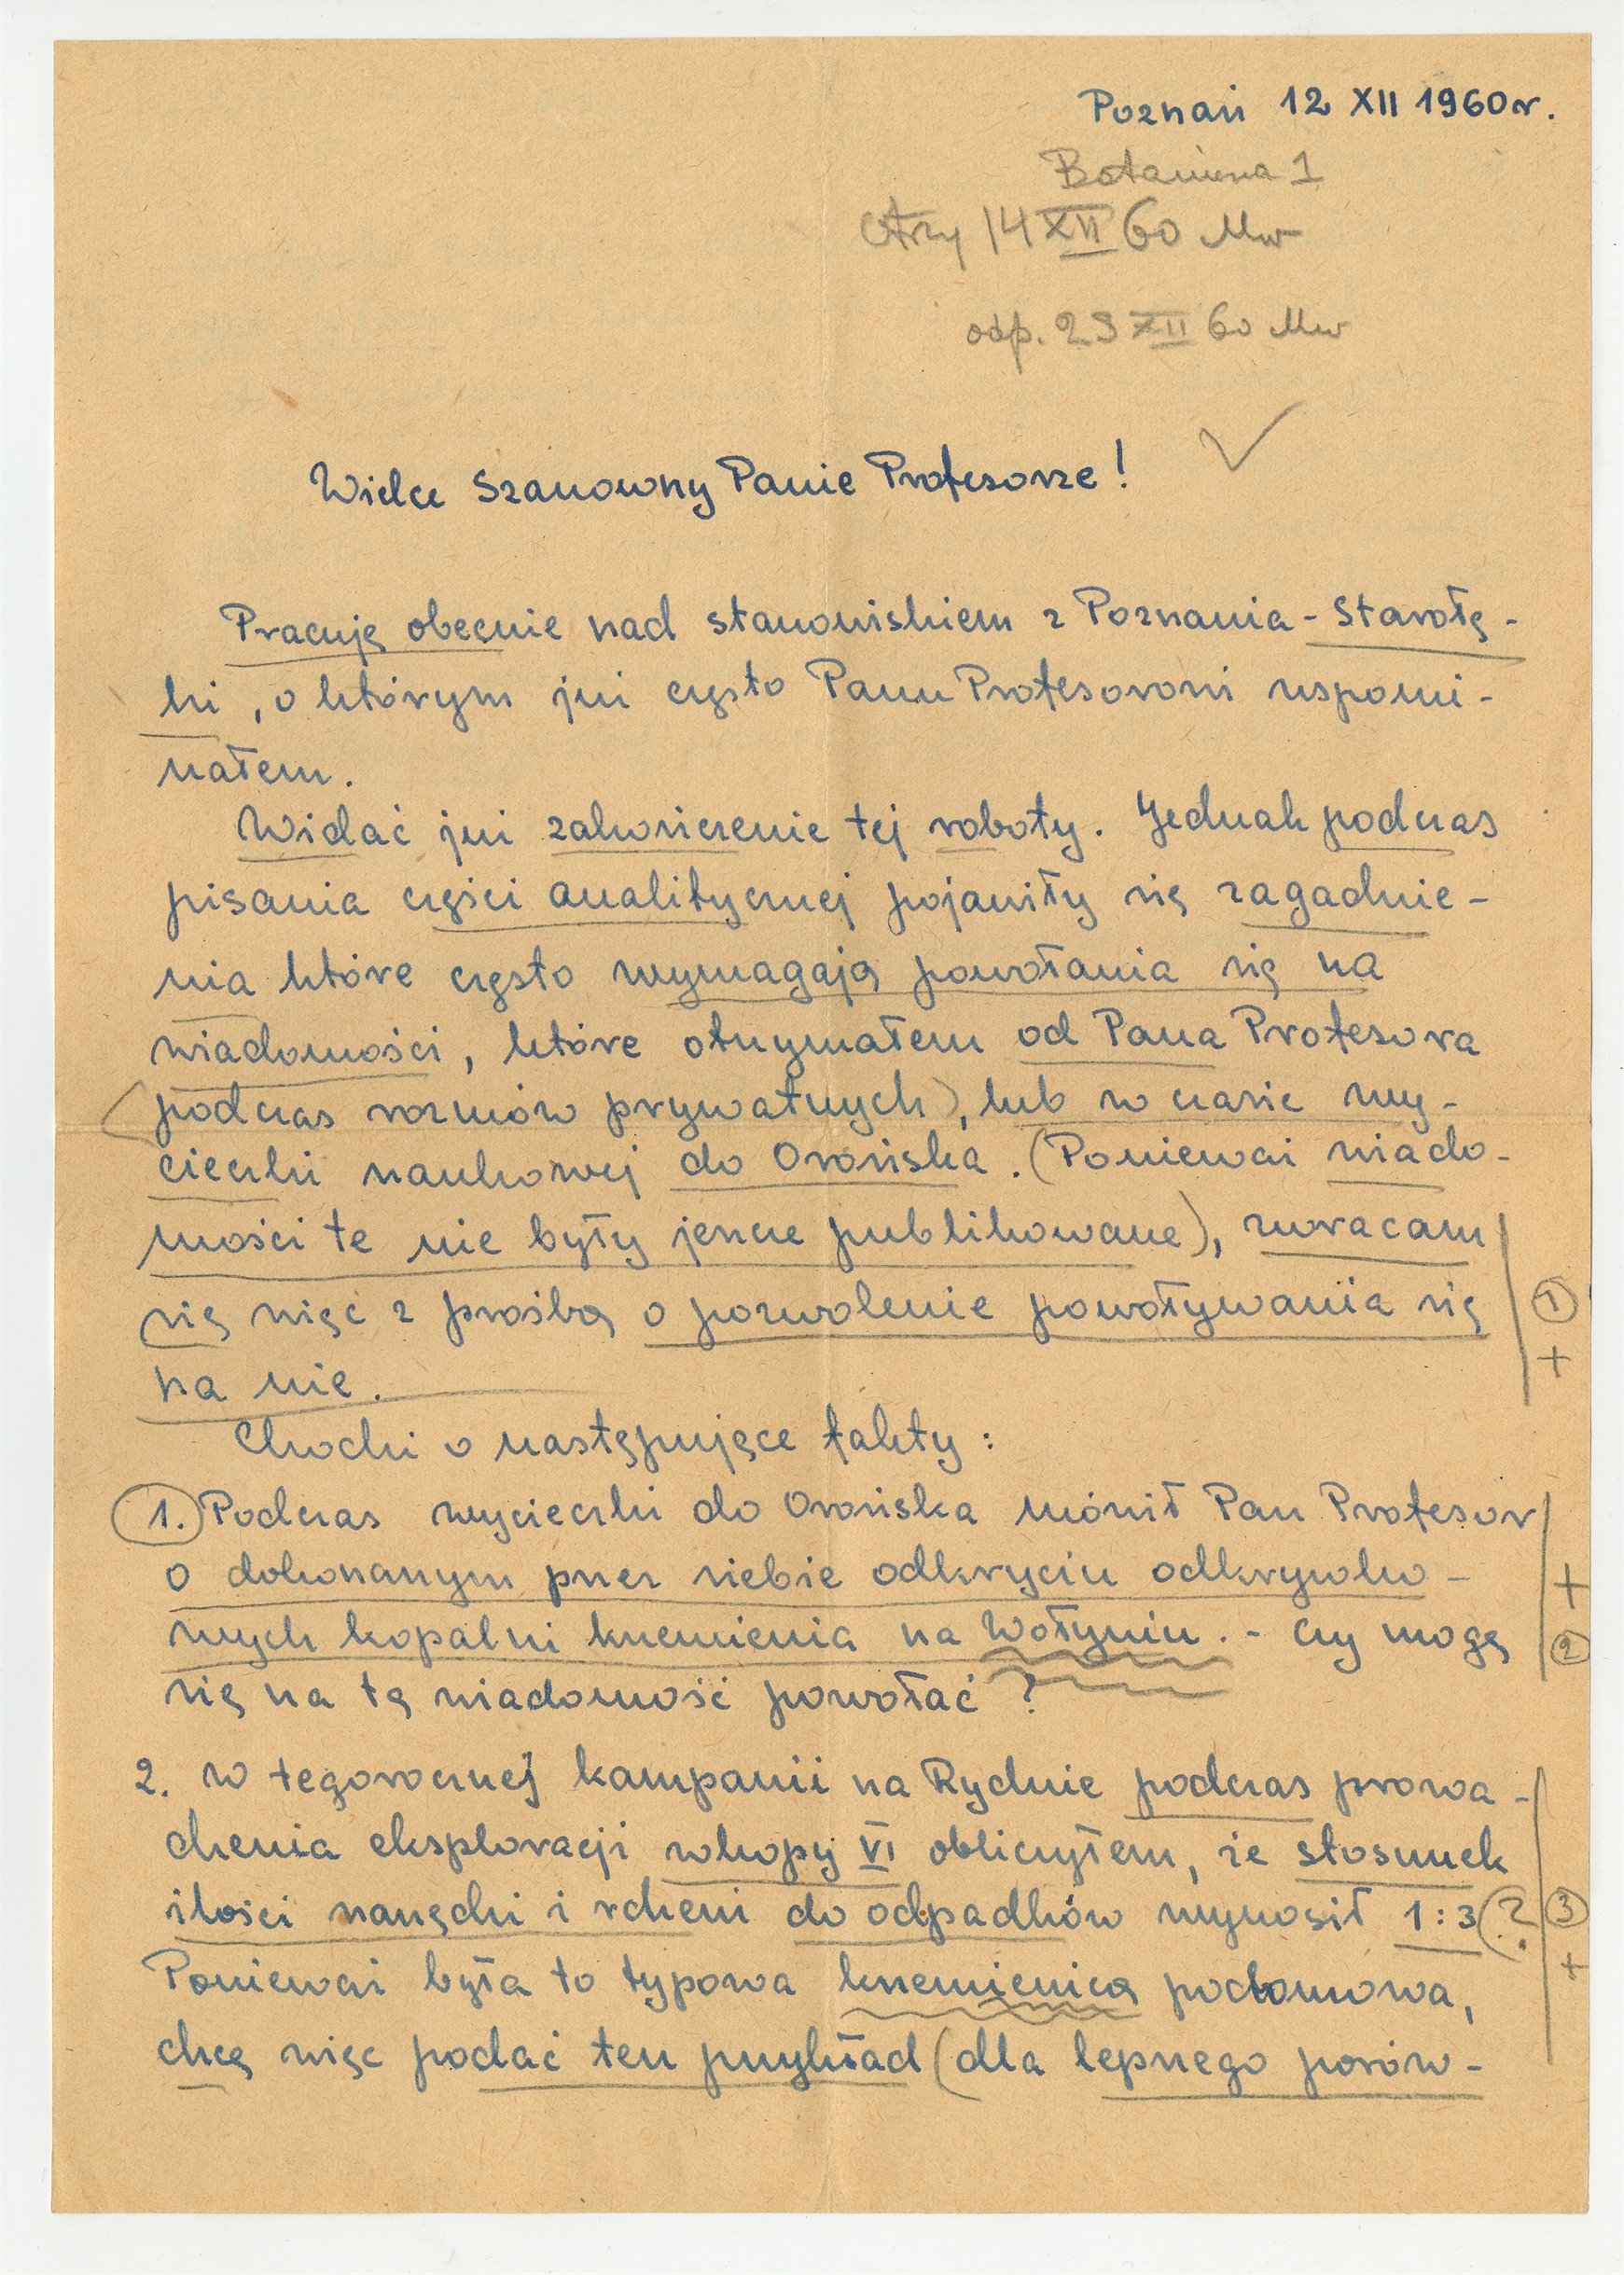 Poznań 12 XII 1960 r.
Botaniczna 1
Otrzy 14 XII 60 Mw
odp. 23 XII 60 Mw
Wielce Szanowny Panie Profesorze!
Pracuję obecnie nad stanowiskiem z Poznania-Starołę-
ki, o którym już często Panu Profesorowi wspomi-
nałem.
Widać już zakończenie tej roboty. Jednak podczas
pisania części analitycznej pojawiły się zagadnie-
nia które często wymagają powołania się na
wiadomości, które otrzymałem od Pana Profesora
podczas rozmów prywatnych, lub w czasie wy-
cieczki naukowej do Orońska. (Ponieważ wiado-
mości te nie były jeszcze publikowane), zwracam
się więc z prośbą o pozwolenie powoływania się 1
na nie. +
Chodzi o następujące fakty:
1. Podczas wycieczki do Orońska mówił Pan Profesor
o dokonanym przez siebie odkryciu odkrywko- +
wych kopalni krzemienia na Wołyniu. - Czy mogę 2
się na tę wiadomość powołać?
2. W tegorocznej kampanii na Rydnie podczas prowa-
dzenia eksploracji wkopy VI obliczyłem, że stosunek
ilości narzędzi i rdzeni do odpadków wynosił 1:3 (? 3
Ponieważ była to typowa krzemienica podomowa, +
chcę więc podać ten przykład (dla lepszego porów-